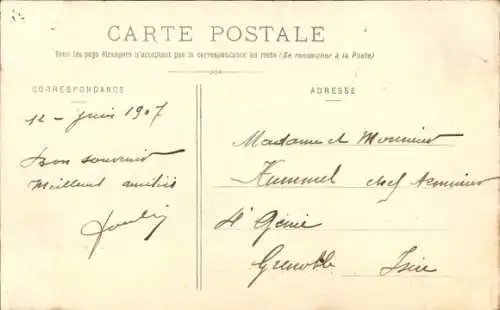 CARTE POSTALE
Tous les pays étrangers n'acceptent pas la correspondance au recto (Se renseigner à la Poste)
CORRESPONDANCE
ADRESSE
12 - Juin 1907
Bon souvenir
Meilleurs amitiés
Madame et Monsieur
Hummel chef armurier
4e Génie
Grenoble Isère